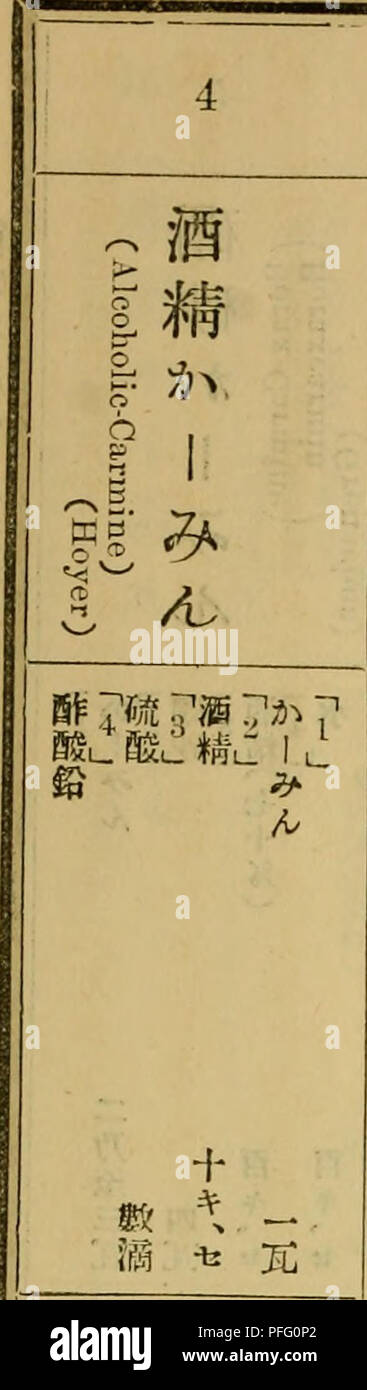 4
酒精かーみん
(Alcoholic-Carmine)
(Hoyer)
「1」
かーみん 一瓦
「2」
酒精 十キ、セ
「3」
硫酸 數滴
「4」
酢酸鉛
alamy
Image ID: PFG0P2
www.alamy.com